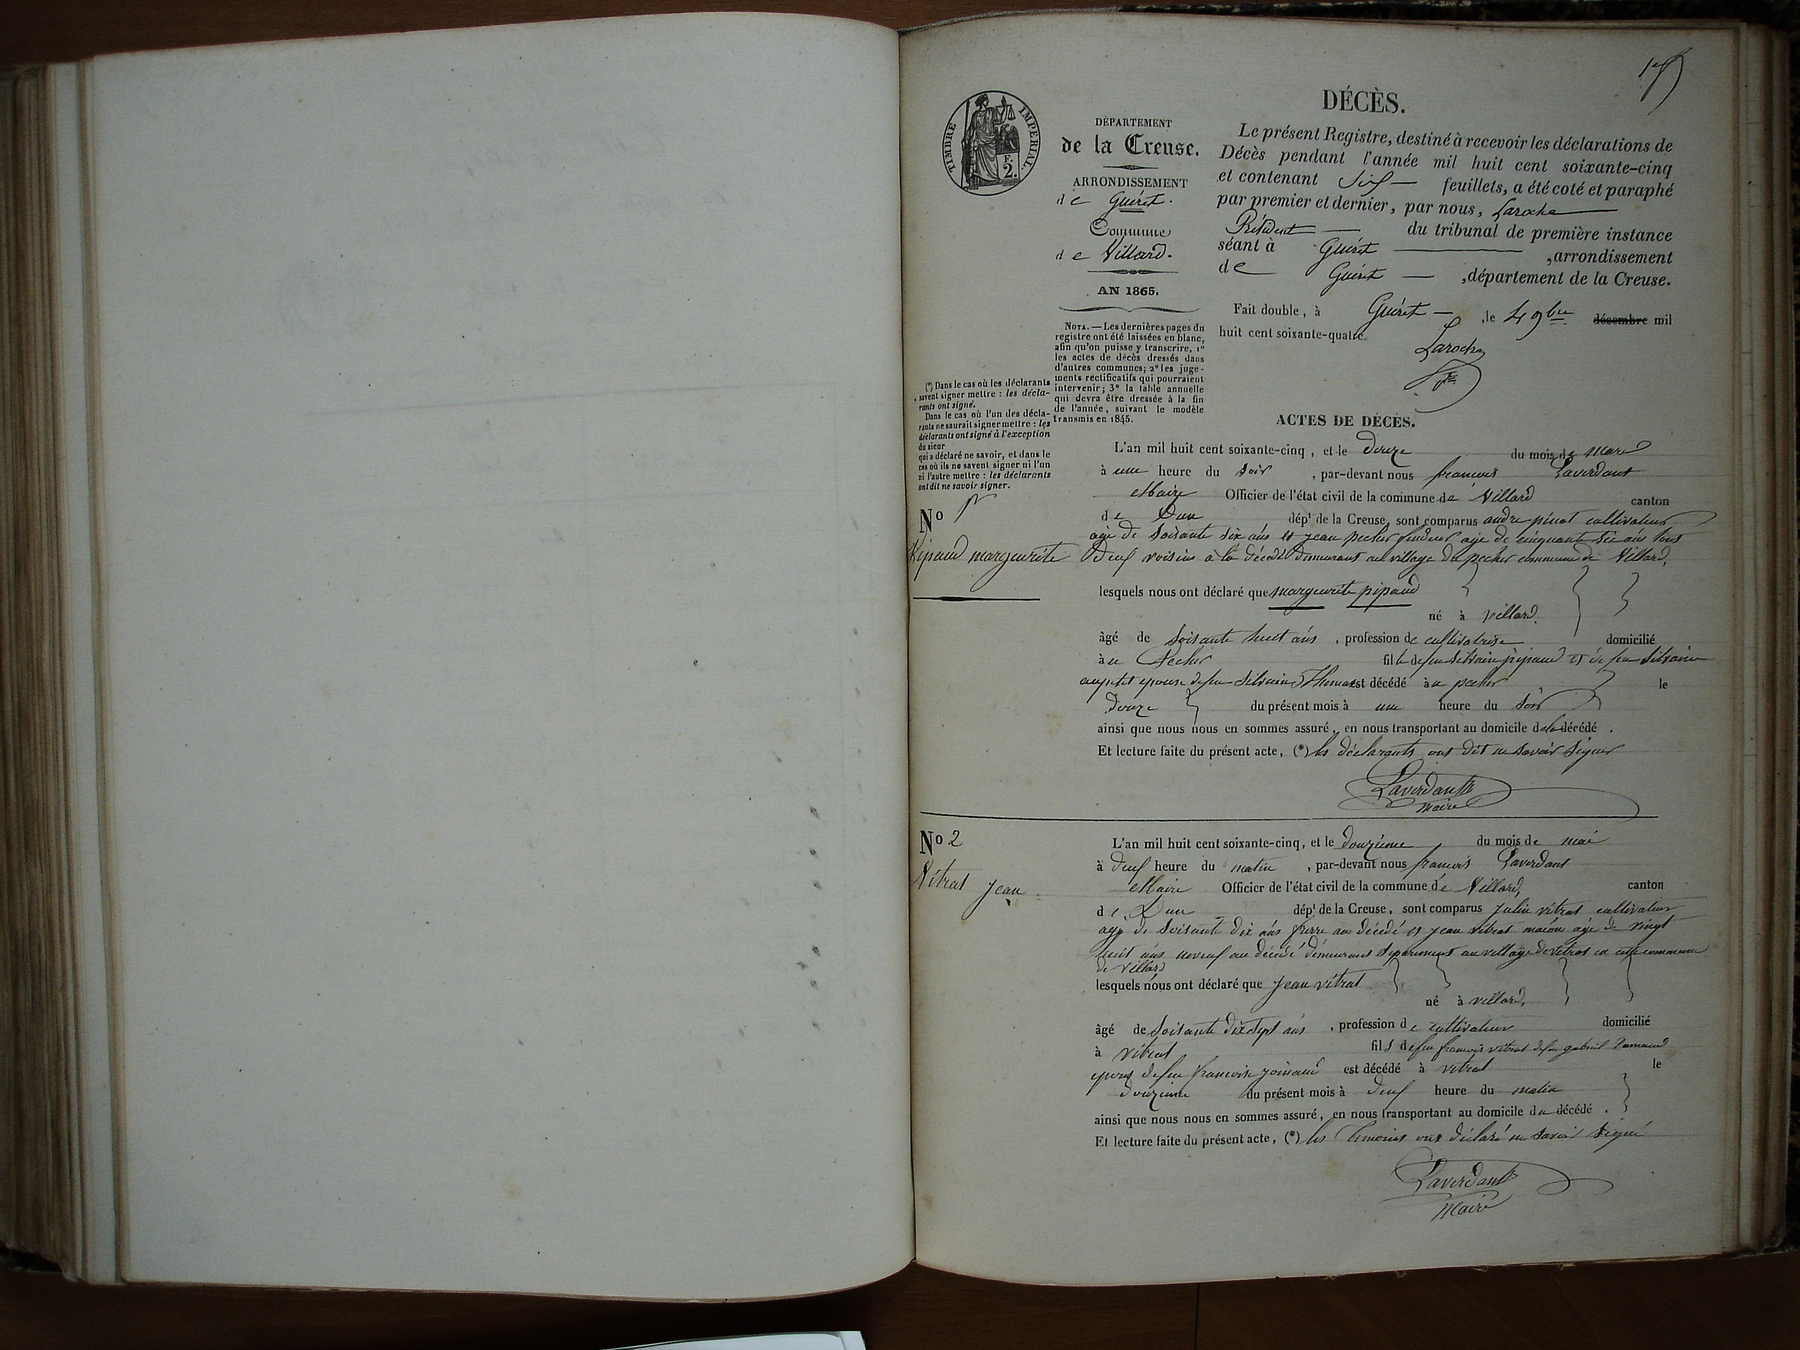 DÉCÈS.
TIMBRE IMPÉRIAL.
F.
2.
DÉPARTEMENT
de la Creuse.
ARRONDISSEMENT
de Guéret.
Commune
de Villard.
AN 1865.
NOTA. — Les dernières pages du
registre ont été laissées en blanc,
afin qu'on puisse y transcrire, 1º
les actes de décès dressés dans
d'autres communes; 2º les juge-
ments rectificatifs qui pourraient
intervenir; 3º la table annuelle
qui devra être dressée à la fin
de l'année, suivant le modèle
transmis en 1845.
(*) Dans le cas où les déclarants
savent signer mettre : les décla-
rants ont signé.
Dans le cas où l'un des décla-
rants ne saurait signer mettre : les
déclarants ont signé à l'exception
du sieur
qui a déclaré ne savoir, et dans le
cas où ils ne savent signer ni l'un
ni l'autre mettre : les déclarants
ont dit ne savoir signer.
Le présent Registre, destiné à recevoir les déclarations de
Décès pendant l'année mil huit cent soixante-cinq
et contenant Six feuillets, a été coté et paraphé
par premier et dernier, par nous, Laroche
Président du tribunal de première instance
séant à Guéret, arrondissement
de Guéret, département de la Creuse.
Fait double, à Guéret, le 4 9bre décembre mil
huit cent soixante-quatre.
Laroche
ACTES DE DÉCÈS.
No 1er
Pipaud marguerite
L'an mil huit cent soixante-cinq, et le douze du mois de Mars
à une heure du Soir, par-devant nous françois Laverdant
Maire Officier de l'état civil de la commune de Villard canton
de Dun dépt de la Creuse, sont comparus andre pinot cultivateur
age de soisante six ans et jean pecher fendeur age de cinquante six ans tous
Deux voisins a la décédé Demeurant au village du pecher commune de Villard,
lesquels nous ont déclaré que marguerite pipaud
né à villard.
âgé de soisante huit ans, profession de cultivatrise domicilié
à u Pecher fille de feu silvain pipaud et de feu Silvaine
aupetit epouse de feu Silvain Thomas est décédé à u pecher le
Douze du présent mois à une heure du Soir
ainsi que nous nous en sommes assuré, en nous transportant au domicile de la décédé.
Et lecture faite du présent acte, (*) les déclarants ont dit ne savoir Signer
Laverdant
Maire
No 2
Vitrat jean
L'an mil huit cent soixante-cinq, et le douzieme du mois de mai
à Deux heure du matin, par-devant nous francois Laverdant
Maire Officier de l'état civil de la commune de Villard, canton
de Dun dépt de la Creuse, sont comparus julien vitrat cultivateur
age de soisant dix ans frere au décédé et jean vitrat macon age de vingt
huit ans neveux au décédé demeurant separement au village de vitrat en cette commune
de villard
lesquels nous ont déclaré que jean vitrat
né à villard,
âgé de soisante dix sept ans, profession de cultivateur domicilié
à vitrat fils de feu francois vitrat de feu gabriel
epoux de feu francoise est décédé à vitrat le
douzieme du présent mois à deux heure du matin
ainsi que nous nous en sommes assuré, en nous transportant au domicile du décédé.
Et lecture faite du présent acte, (*) les temoins ont déclaré ne savoir signé
Laverdant
Maire